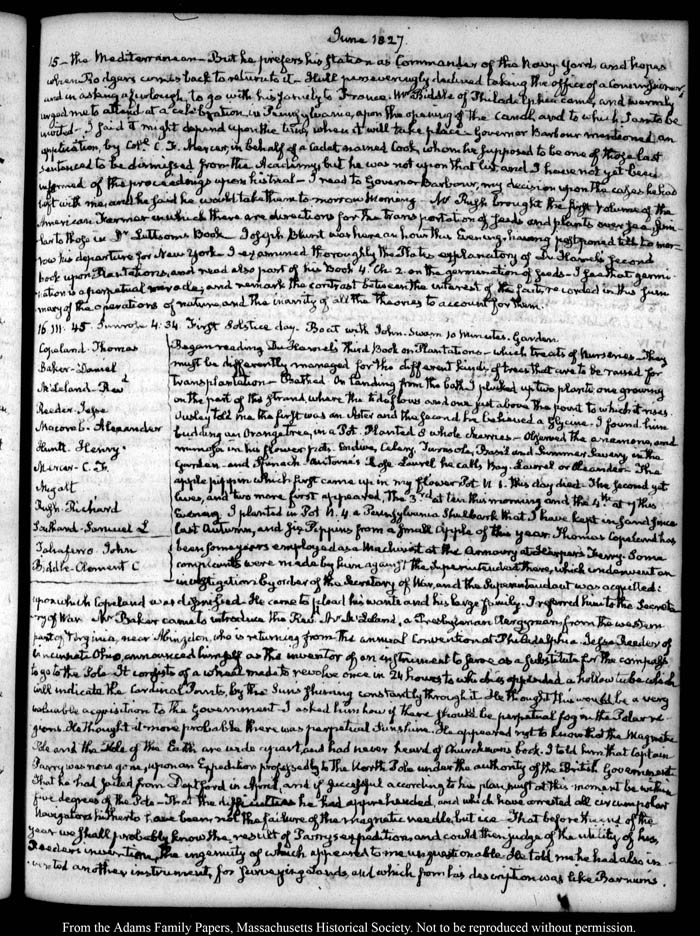 June 1827
15 – the Mediterranean – But he prefers his station as Commander of the Navy Yard, and hopes
when Rodgers comes back to return to it – Hull perseveringly declined taking the office of a Commissioner,
and in asking a furlough, to go with his family to France. Mr Biddle of Philadelphia came, and warmly
urged me to attend at a celebration, in Pennsylvania, upon the opening of the Canal, and to which I am to be
invited – I said it might depend upon the time when it will take place – Governor Barbour mentioned an
application, by Col. C. F. Mercer, in behalf of a Cadet named Cook, whom he supposed to be one of those last
sentenced to be dismissed from the Academy, but he was not upon that list and I have not yet been
informed of the proceedings upon his trial – I read to Governor Barbour, my decision upon the cases he had
left with me, and he said he would take them to morrow morning – Mr Rush brought the first Volume of the
American Farmer in which there are directions for the transportation of seeds and plants over sea simi-
lar to those in Dr Lettsom's Book – Joseph Blunt was here an hour this Evening, having postponed till to mor-
row his departure for New York – I examined thoroughly the Plates explanatory of Du Hamel's second
book upon Plantations, and read also part of his Book 4. Ch. 2. on the germination of seeds – I see that germi-
nation is a perpetual miracle; and remark the contrast between the interest of the facts recorded in this sum-
mary of the operations of nature, and the inanity of all the theories to account for them.
16. III: 45. Sunrose 4: 34. First Solstice day. Boat with John. Swam 10 Minutes. Garden
Copeland Thomas
Baker – Daniel
McLeland – Revd
Reeder – Jesse
Macomb – Alexander
Huntt Henry
Mercer – C. F.
Rush – Richard
Southard – Samuel L
Taliaferro John
Biddle – Clement C
Began reading Du Hamel's Third Book on Plantations – which treats of Nurseries – They
must be differently managed for the different kinds of trees that are to be raised for
transplantation – Bathed. On landing from the bath, I plucked up two plants one growing
on the part of the strand, where the tide flows and one just above the point to which it rises.
Ousley told me the first was an Aster and the second he believed a Glycine. I found him
budding an Orange tree, in a Pot. Planted 8 whole cherries – Observed the anemone, and
mimosa in his flower pots. Endive, Celery, Turnsole, Basil and Summer Savory, in the
Garden – and Spinach
apple pippin which first came up in my flower Pot N. 1. this day died. The second yet
lives, and two more first appeared, the 3rd at ten this morning and the 4th at 7 this
Evening. I planted in Pot N. 4 a Pennsylvania Shellbark that I have kept in sand since
last Autumn, and six Pippins from a small Apple of this year. Thomas Copeland has
been some years employed as a Machinist at the Armoury at Harper's Ferry. Some
complaints were made by him against the Superintendent there, which underwent an
investigation by order of the Secretary of War, and the Superintendent was acquitted:
upon which Copeland was dismissed – He came to plead his wants and his large family. I referred him to the Secreta-
ry of War. Mr Baker came to introduce the Rev. Mr McLeland, a Presbyterian Clergyman, from the western
part of Virginia, near Abingdon, who is returning from the annual Convention at Philadelphia. Jesse Reeder of
Cincinnati Ohio, announced himself as the inventor of an instrument to serve as a substitute for the compass
to go to the Pole. It consists of a wheel made to revolve once in 24 hours to which is appended a hollow tube which
will indicate the Cardinal Points, by the Sun's shining constantly through it. He thought this would be a very
valuable acquisition to the Government. I asked him how if there should be perpetual fog in the Polar re-
gions. He thought it more probable there was perpetual Sunshine. He appeared not to know that the Magnetic
Pole and the Pole of the Earth are wide apart, and had never heard of Churchman's book. I told him that Captain
Parry was now gone, upon an Expedition professedly to the North Pole under the authority of the British Government
That he had sailed from Deptford in April, and if successful according to his plan, must at this moment be within
five degrees of the Pole – That the difficulties he had apprehended, and which have arrested all circumpolar
Navigators hitherto have been, not the failure of the magnetic needle, but ice – That before the end of the
year we shall probably know the result of Parry's expedition, and could then judge of the utility of his,
Reeder's invention, the ingenuity of which appeared to me unquestionable. He told me he had also in-
vented another instrument, for surveying lands, and which from his description was like Barnum's.
From the Adams Family Papers, Massachusetts Historical Society. Not to be reproduced without permission.